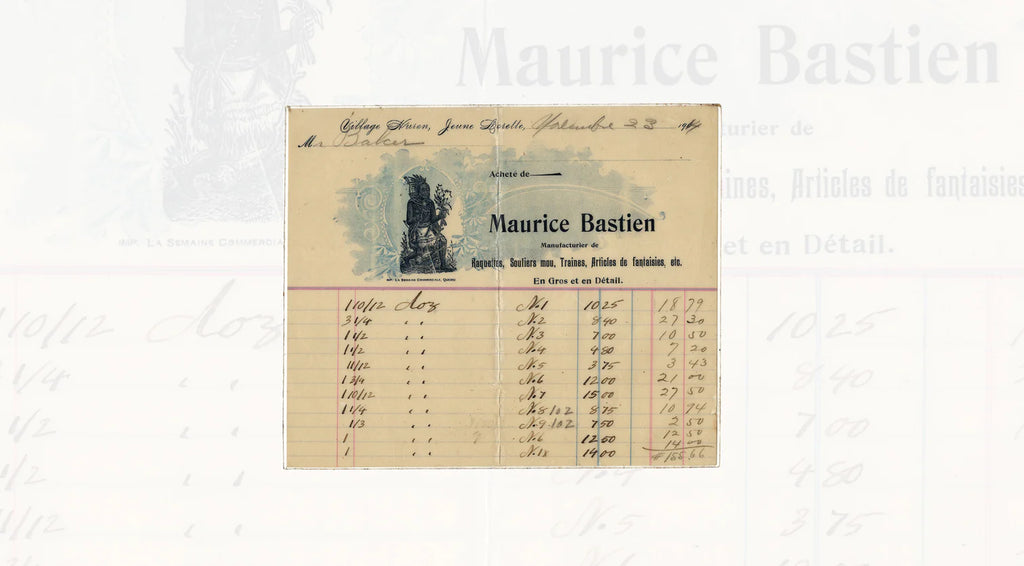 Village Huron, Jeune Lorette, Novembre 23 19
Mr Baker
Acheté de
Maurice Bastien
Manufacturier de
Raquettes, Souliers mou, Traines, Articles de fantaisies, etc.
IMP. LA SEMAINE COMMERCIALE, QUEBEC
En Gros et en Détail.
1 10/12 doz No. 1 10 25 18 79
3 1/4 " " No. 2 8 40 27 30
1 1/2 " " No. 3 7 00 10 50
1 1/2 " " No. 4 4 80 7 20
11/12 " " No. 5 3 75 3 43
1 3/4 " " No. 6 12 00 21 00
1 10/12 " " No. 7 15 00 27 50
1 1/4 " " No. 8 102 8 75 10 94
1/3 " " No. 9 102 7 50 2 50
1 " " No. 6 12 50 12 50
1 " " No. 18 14 00 14 00
# 155 66